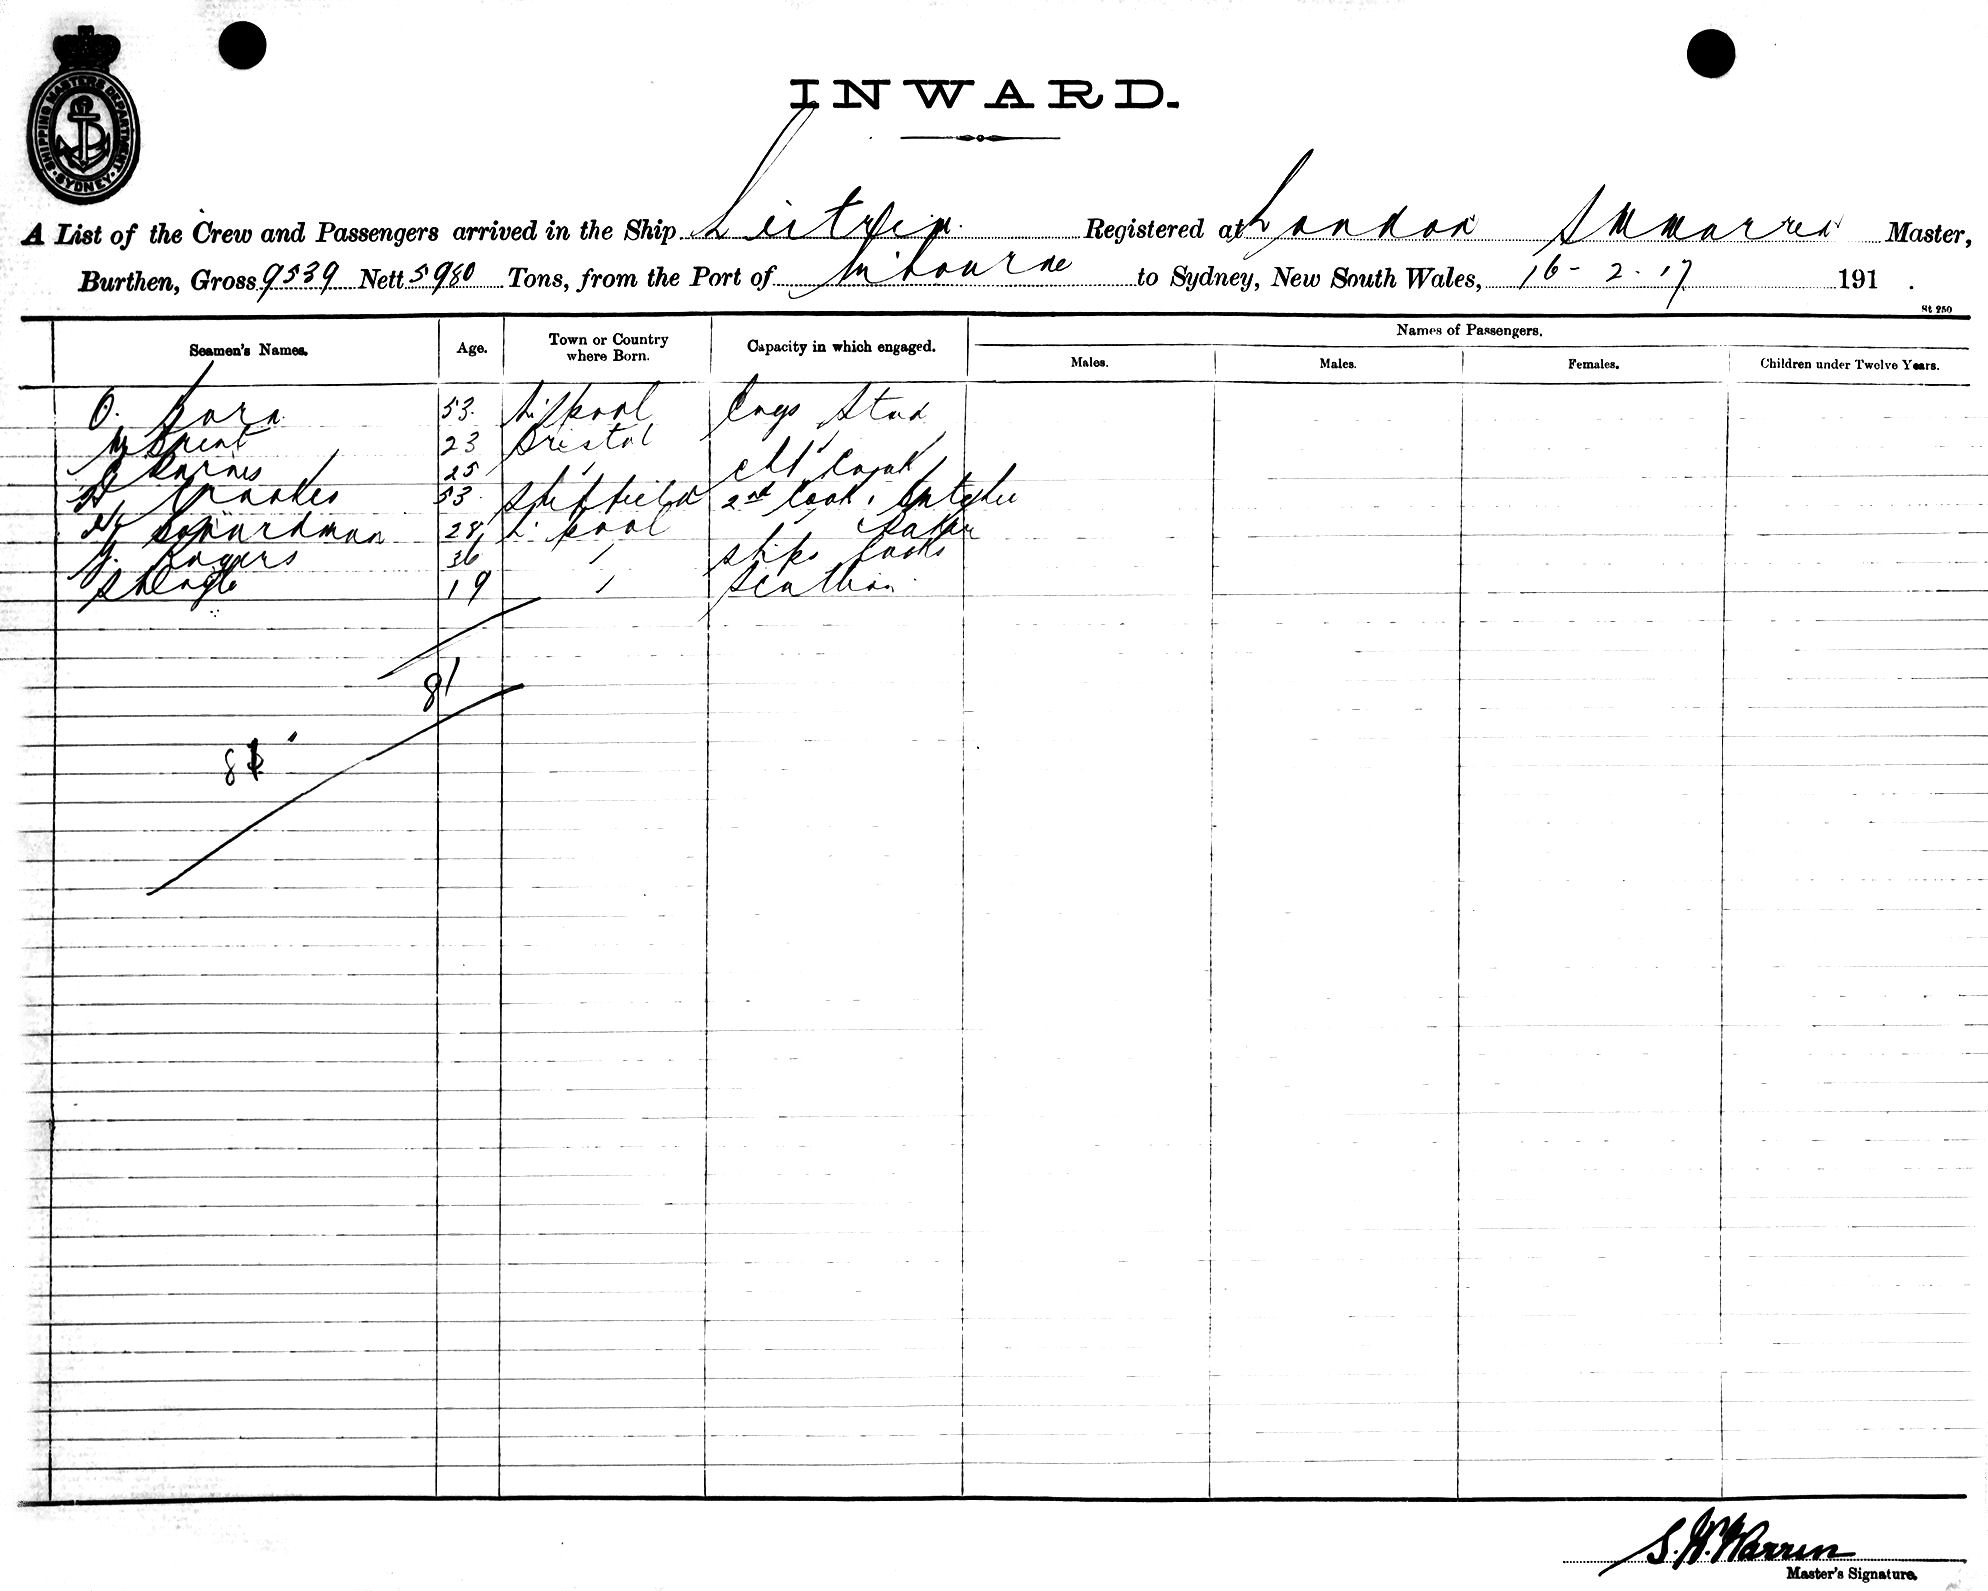 SHIPPING MASTERS DEPARTMENT SYDNEY
INWARD.
A List of the Crew and Passengers arrived in the Ship Leitrim Registered at London S W Warren Master,
Burthen, Gross 9539 Nett 5980 Tons, from the Port of M'bourne to Sydney, New South Wales, 16-2.17 191 .
St 250
Seamen's Names. Age. Town or Country where Born. Capacity in which engaged. Names of Passengers.
Males. Males. Females. Children under Twelve Years.
O. 53. L'pool Crgs Stud
23 Bristol
Barnes 25 " Chf Cook
Crookes 53 Sheffield 2nd Cook & Butcher
Boardman 28 L'pool " Baker
J. Rogers 36 " Ships Cook
19 " Scullion
81
8
S. W. Warren
Master's Signature.